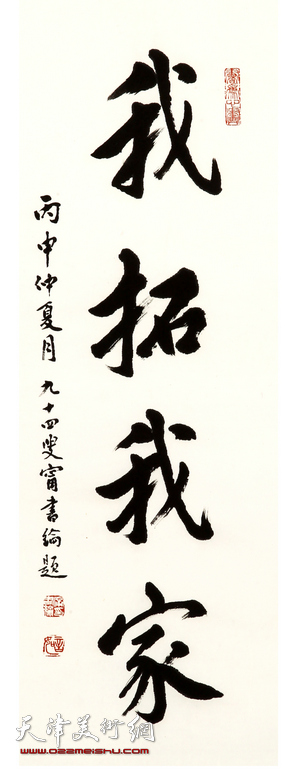 我拓我家
丙申仲夏月 九十四叟甯書綸題
天津美術網
www.022meishu.com